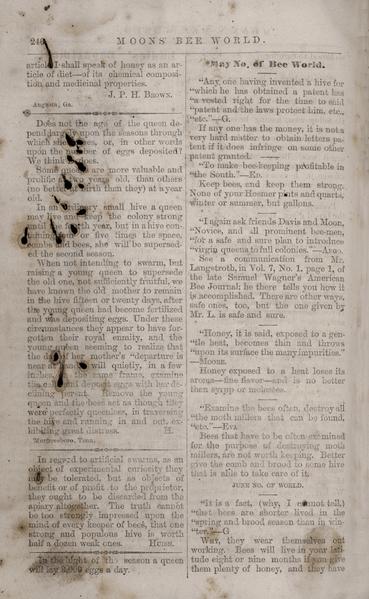 240
MOONS' BEE WORLD.
article I shall speak of honey as an ar-
ticle of diet—of its chemical composi-
tion and medicinal properties.
J. P. H. BROWN.
Augusta, Ga.
Does not the age of the queen de-
pend upon the seasons through
which she, or, in other words
upon the number of eggs deposited?
We think
Some are more valuable and
prolific years old, than others
(no better birth than they) at a year
old.
In a small hive a queen
may live and keep the colony strong
until year, but in a hive con-
taining or five times the space,
combs and bees, she will be supersed-
ed the second season.
When not intending to swarm, but
raising a young queen to supersede
the old one, not sufficiently fruitful, we
have known the old mother to remain
in the hive fifteen or twenty days, after
the young queen had become fertilized
and was depositing eggs. Under these
circumstances they appear to have for-
gotten their royal enmity, and the
young queen seeming to realize that
the mother's "departure is
near will quietly, in a few
inches, same frame, examine
the and deposit eggs with her de-
clining parent. Remove the young
queen and the bees act as though they
were perfectly queenless, in traversing
the hive and running in and out, ex-
hibiting great distress. H.
Murfreesboro, Tenn.
In regard to artificial swarms, as an
object of experimental curiosity they
may be tolerated, but as objects of
benefit or of profit to the proprietor,
they ought to be discarded from the
apiary altogether. The truth cannot
be too strongly impressed upon the
mind of every keeper of bees, that one
strong and populous hive is worth
half a dozen weak ones. HUISH.
In the height of the season a queen
will lay 3,000 eggs a day.
May No. of Bee World.
"Any one having invented a hive for
"which he has obtained a patent has
"a vested right for the time to said
"patent and the laws protect him, etc.,
"etc."—G.
If any one has the money, it is not a
very hard matter to obtain letters pa-
tent if it does infringe on some other
patent granted.
"To make bee-keeping profitable in
"the South."—ED.
Keep bees, and keep them strong.
None of your Hosmer pints and quarts,
winter or summer, but gallons.
"I again ask friends Davis and Moon,
"Novice, and all prominent bee-men,
"for a safe and sure plan to introduce
"virgin queens to full colonies."—ARGO.
See a communication from Mr.
Langstroth, in Vol. 7, No. 1, page 1, of
the late Semuel Wagner's American
Bee Journal; he there tells you how it
is accomplished. There are other ways,
safe ones, too, but the one given by
Mr. L. is safe and sure.
"Honey, it is said, exposed to a gen-
"tle heat, becomes thin and throws
"upon its surface the many impurities."
—MOORE.
Honey exposed to a heat loses its
aroma—fine flavor—and is no better
then syrup or molasses.
"Examine the bees often, destroy all
"the moth millers that can be found,
"etc."—EVA
Bees that have to be often examined
for the purpose of destroying moth
millers, are not worth keeping. Better
give the comb and brood to some hive
that is able to take care of it.
JUNE NO. OF WORLD.
"It is a fact, (why, I cannot tell)
"that bees are shorter lived in the
"spring and brood season than in win-
"ter."—G
Why, they wear themselves out
working. Bees will live in your lati-
tude eight or nine months if you give
them plenty of honey, and they have